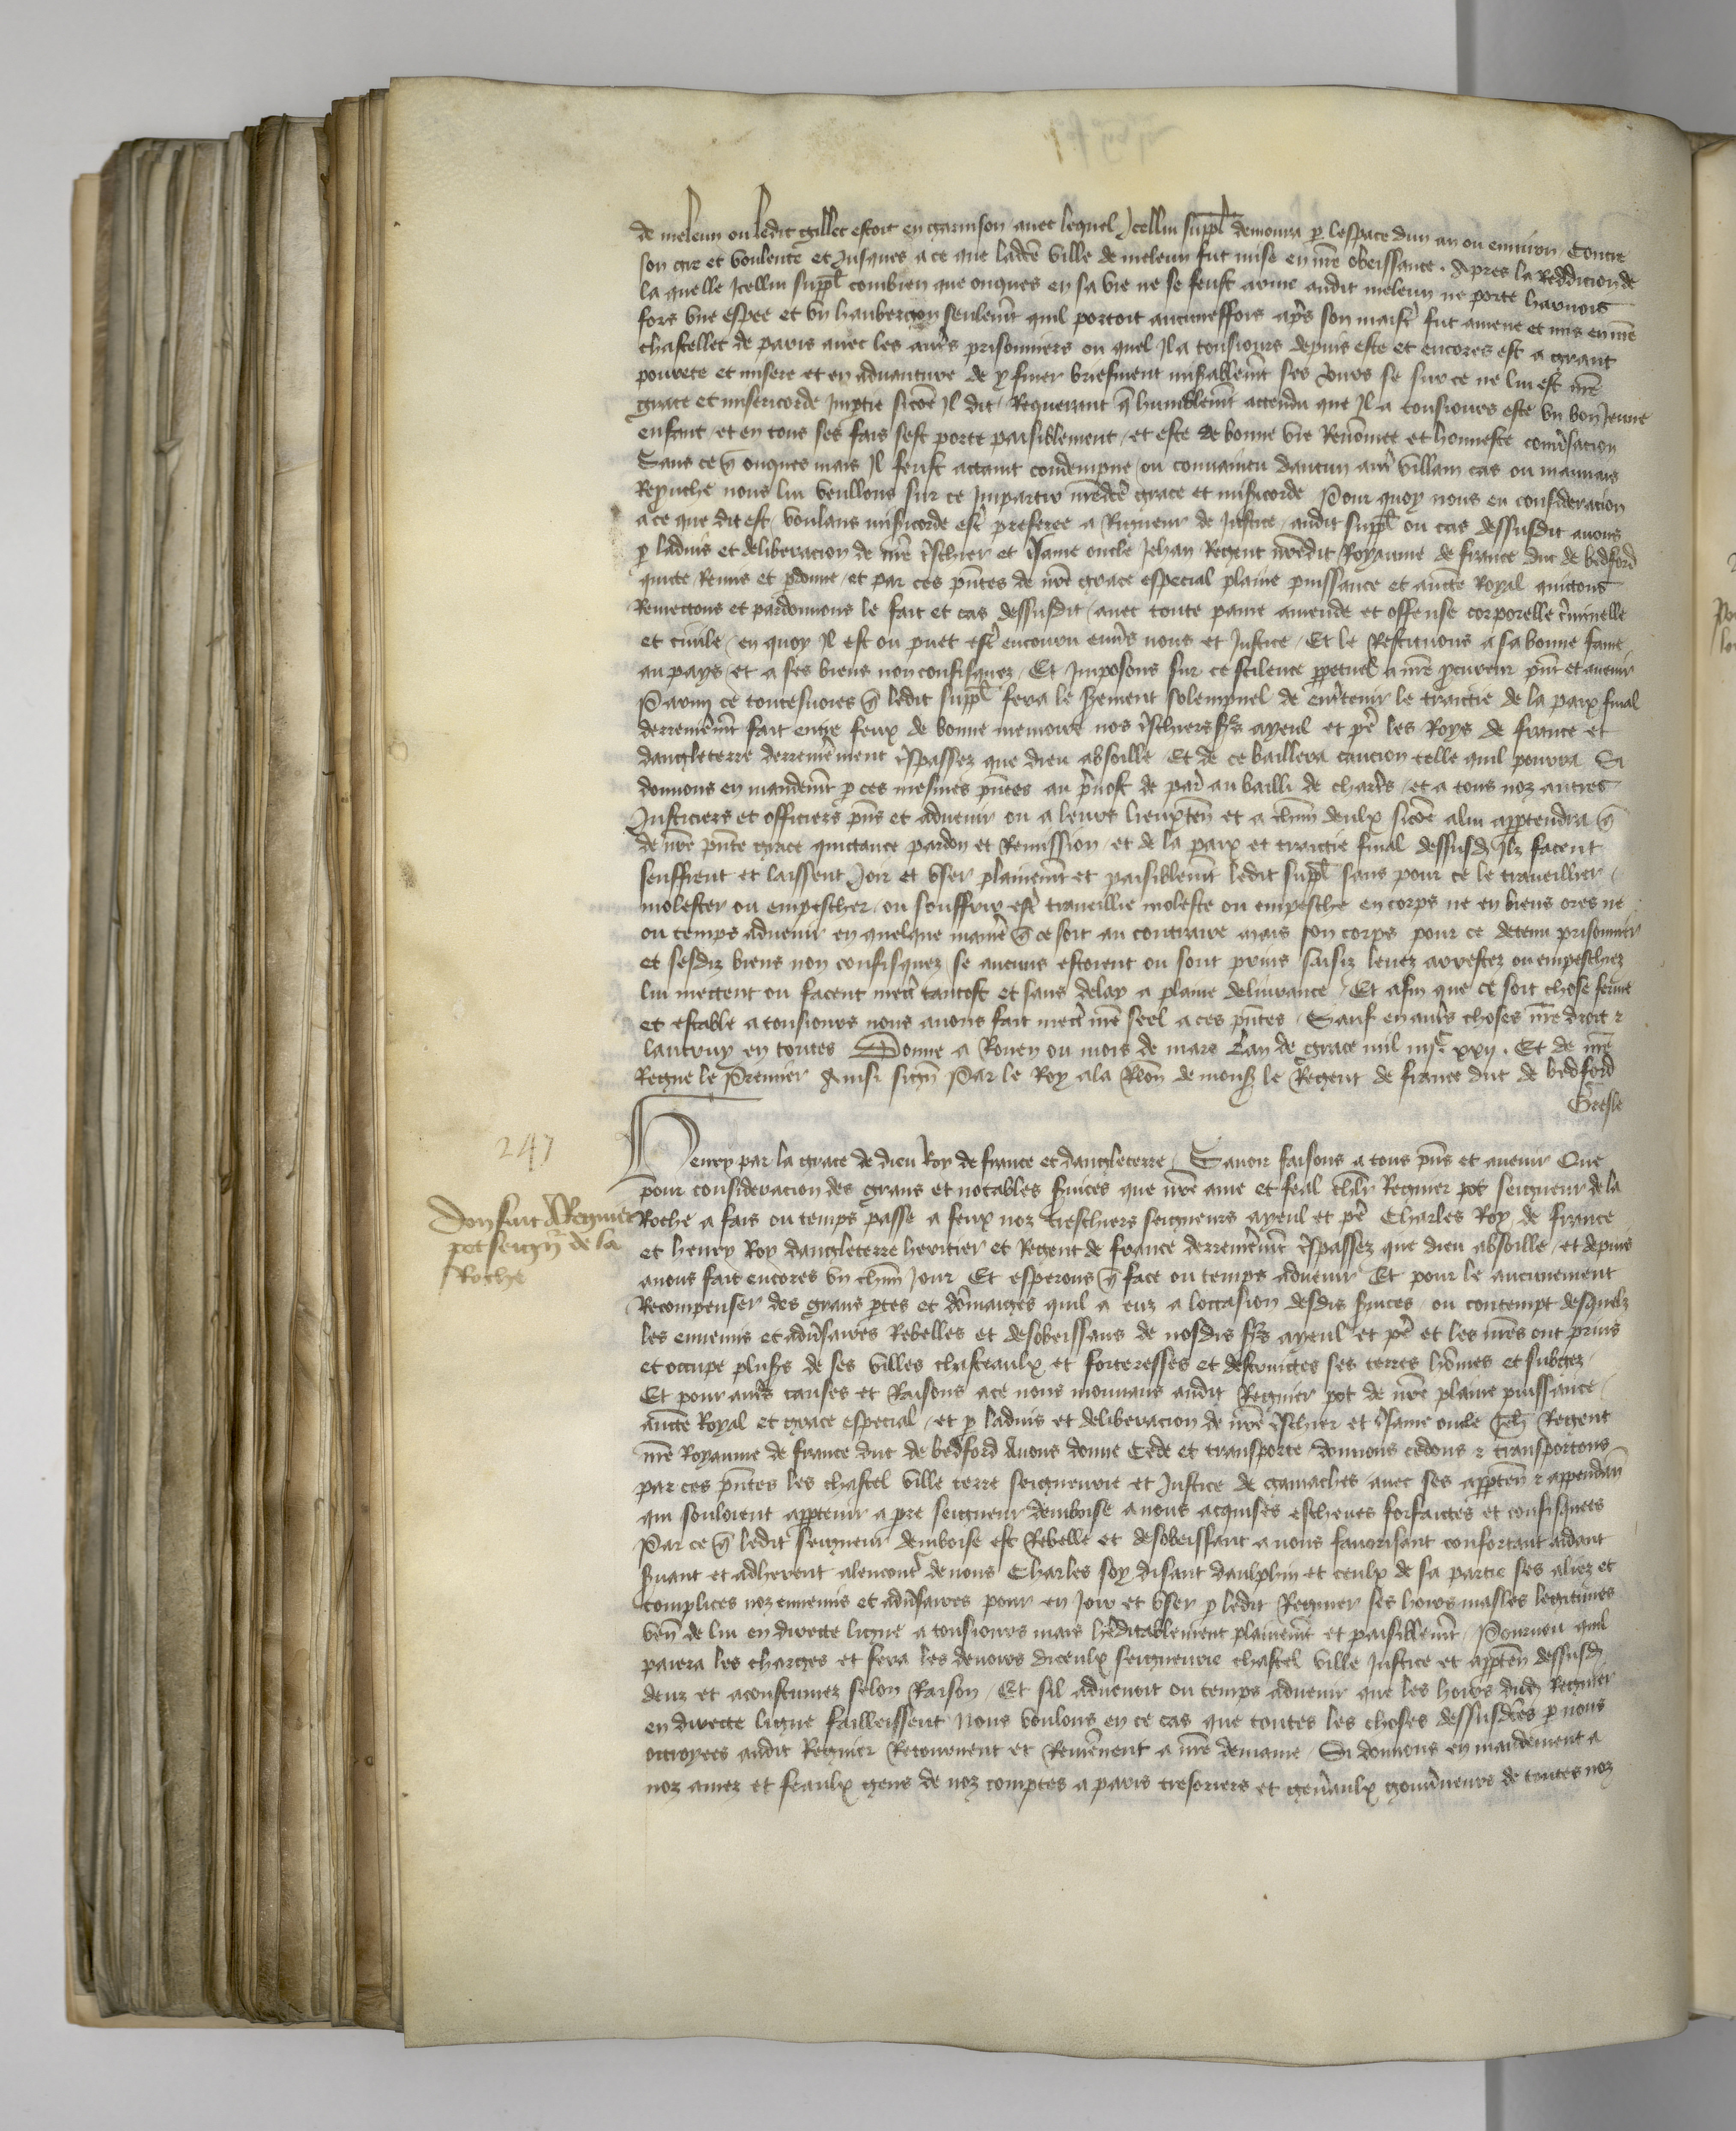 de meleun ou ledit gillet estoit en garnison auec lequel Icellui suppl demoura p lespace dun an ou enuiron Contre
son gre et voulente et Jusques a ce que ladce ville de meleun fut mise en nre obeissance . Apres la Reddicion de
la quelle Icellui suppl combien que onques en sa vie ne se feust arme audit meleun ne porte harnois
fors vne espee et vn haubergon seulemt quil portoit aucuneffois aps son maist fut amene et mis en nre
chastellet de paris auec les auts prisonniers ou quel Il a tousiours depuis este et encores est a grant
pourete et misere et en aduanture de y finer briefment misablemt ses Jours se sur ce ne lui est nre
grace et misericorde Imptie sicoe Il dit / Requerant q humblemt attendu que Il a tousiours este vn bon Jeune
enfant / et en tous ses fais sest porte paisiblement / et este de bonne vie Renommee et honneste conusacion
Sans ce q onques mais Il feust attaint condempne ou conuaincu daucun aut villain cas ou mauuais
Reprouche nous lui veullons sur ce Impartir nredce grace et misicorde Pour quoy nous en consideracion
a ce que dit est / voulans misicorde est preferee a Rigueur de Justice / audit suppl ou cas dessusdit auons
p laduis et deliberacion de nre tschier et tsame oncle Jehan Regent nredit Royaume de france duc de bedford
quicte Remis et pdonne / et par ces pntes de nre grace especial plaine puissance et aucte Royal quictons
Remectons et pardonnons le fait et cas dessusdit / auec toute paine amende et offense corporelle criminelle
et ciuile / en quoy Il est ou puet est encouru enuers nous et Justice / Et le Restituons a sa bonne fame
au pays / et a ses biens non confisquez / Et Imposons sur ce scilence ppetuel a nre procureur pnt et auenir
Parmi ce toutesuoies q ledit suppl fera le serement solempnel de entretenir le traictie de la paix final
derrenierement fait entre feux de bonne memoire nos tschiers srs ayeul et pe les Roys de france et
dangleterre derrenierement tspassez que dieu absoille Et de ce baillera caucion telle quil pourra Si
donnons en mandemt p ces mesmes pntes au puost de par au bailli de chars / et a tous noz autres
Justiciers et officiers pns et aduenir ou a leurs lieuxten et a chun deulx sicoe a lui apptendra q
de nre pnte grace quictance pardon et Remission / et de la paix et traictie final dessusd Ilz facent
seuffrent et laissent Joir et vser plainemt et paisiblemt ledit suppl sans pour ce le traueillier
molester ou empescher / ou souffrir est traueillie moleste ou empesche en corps ne en biens ores ne
ou temps aduenir en quelque manie q ce soit au contraire mais son corps pour ce detenu prisonnier
et sesdiz biens non confisquez se aucuns estoient ou sont prins saisiz leuez arrestez ou empeschez
lui mettent ou facent mect tantost et sans delay a plaine deliurance / Et afin que ce soit chose ferme
et estable a tousiours nous auons fait mect nre seel a ces pntes . Sauf en auts choses nre droit &
lautruy en toutes Donne a Rouen ou mois de mars Lan de grace mil iiijc xxij . Et de nre
Regne le Premier Ainsi signe Par le Roy a la Reon de mons le Regent de france duc de bedford
Gresle
247
Don fait A Regnier
pot seignr de la
Roche
Henry par la grace de dieu Roy de france et dangleterre / Sauoir faisons a tous pns et auenir Que
pour consideracion des grans et notables suices que nre ame et feal chlr Regnier pot seigneur de la
Roche a fais ou temps passe a feux noz treschiers seigneurs ayeul et pe Charles Roy de france
et henry Roy dangleterre heritier et Regent de france derreniemt tspassez que dieu absoille / et depuis
auons fait encores vn chun Jour Et esperons q face ou temps aduenir Et pour le aucunement
Recompenser des grans ptes et dommaiges quil a euz a loccasion desdis suices / ou contempt desquelz
les ennemis et adusaires Rebelles et desobeissans de nosdis srs ayeul et pe et les nres ont prins
et occupe plusrs de ses villes chasteaulx et forteresses et destruictes ses terres homes et subgez
Et pour auts causes et Raisons a ce nous mouuans audit Regnier pot de nre plaine puissance
aucte Royal et grace especial / et p laduis et deliberacion de nre tschier et tsame oncle Jeh Regent
nre Royaume de france duc de bedford Auons donne Cede et transporte donnons cedons & transportons
par ces pntes les chastel ville terre seigneurie et Justice de gamaches auec ses apptens & appendan
qui souloient apptenir a pre seigneur demboise a nous acquises escheues forfaictes et confisquees
Par ce q ledit seigneur demboise est Rebelle et desobeissant a nous fauorisant confortant aidant
suant et adherent alencont de nous Charles soy disant daulphin et ceulx de sa partie ses aliez et
complices noz ennemis et adusaires pour en Joir et vser p ledit Regnier ses hoirs masles legitimes
ven de lui en directe ligne a tousiours mais heditablement plainemt et paisiblemt / Pourueu quil
paiera les charges et fera les deuoirs diceulx seigneurie chastel ville Justice et appten dessusd
deuz et acoustumez selon Raison / Et sil aduenoit ou temps aduenir que les hoirs dud Regnier
en directe ligne failleissent Nous voulons en ce cas que toutes les choses dessusdces p nous
octroyees audit Regnier Retournent et Reuienent a nre demaine / Si donnons en mandement a
noz amez et feaulx gens de noz comptes a paris tresoriers et genaulx gouuneurs de toutes noz